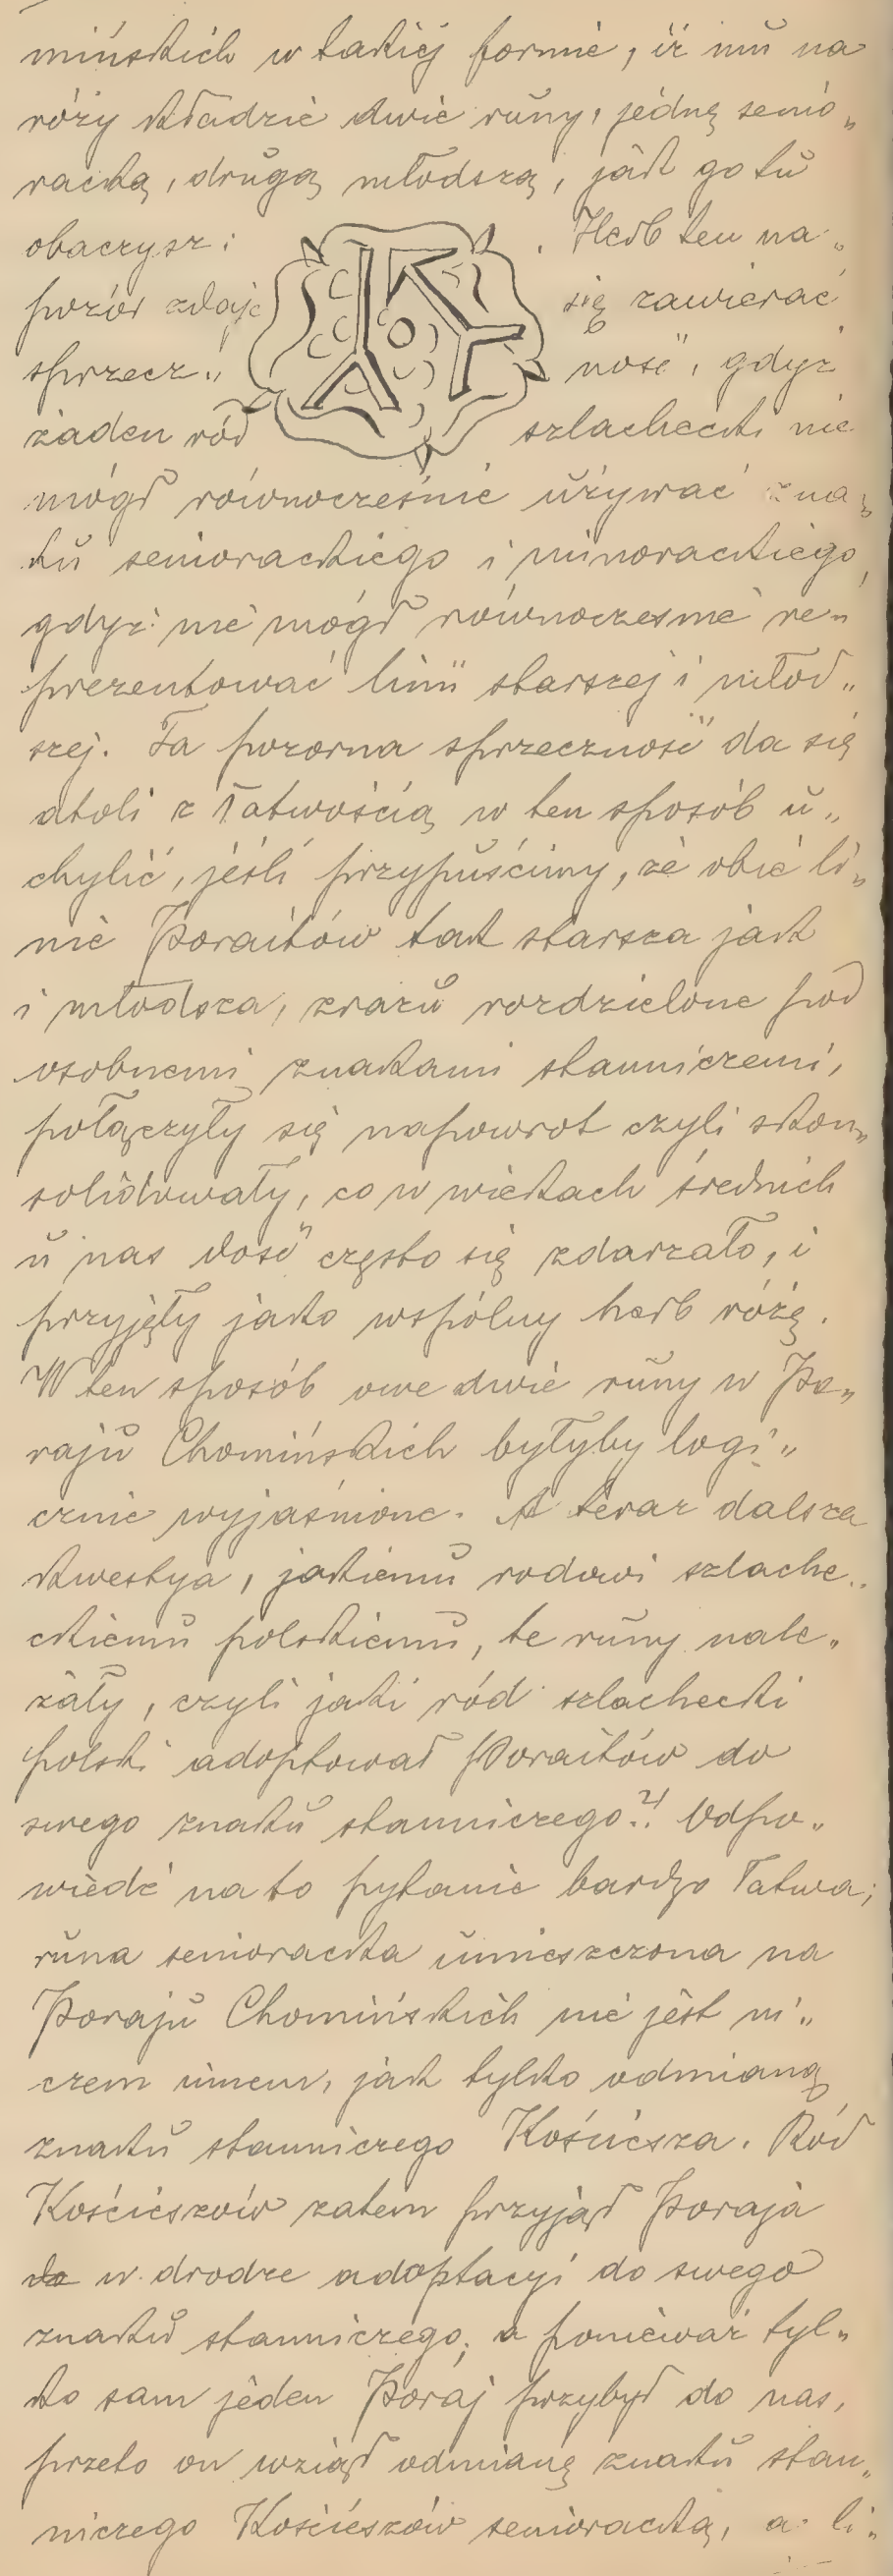 mińskich w takiéj formie, iż mu na
róży kładzie dwie runy, jednę senio„
racką, drugą młodszą, jak go tu
obaczysz: . Herb ten na„
pozór zdaje się zawierać
sprzecz„ ność, gdyż
żaden ród szlachecki nie
mógł równocześnie używać zna„
ku seniorackiego i minorackiego,
gdyż nie mógł równocześnie re„
prezentować linii starszej i młod„
szej. Ta pozorna sprzeczność da się
atoli z łatwością w ten sposób u„
chylić, jeśli przypuścimy, że obie li„
nie Poraitów tak starsza jak
i młodsza, zrazu rozdzielone pod
osobnemi znakami stanniczemi,
połączyły się napowrot czyli skon„
solidowały, co w wiekach średnich
u nas dość często się zdarzało, i
przyjęły jako wspólny herb różę.
W ten sposób owe dwie runy w Po„
raju Chomińskich byłyby logi„
cznie wyjaśnione. A teraz dalsza
kwestya, jakiemu rodowi szlache„
ckiemu polskiemu, te runy nale„
żały, czyli jaki ród szlachecki
polski adoptował Poraitów do
swego znaku stanniczego?! Odpo„
wiedź na to pytanie bardzo łatwa;
runa senioracka umieszczona na
Poraju Chomińskich nie jest ni„
czem innem, jak tylko odmianą
znaku stanniczego Kościesza. Ród
Kościeszów zatem przyjął Poraja
do w drodze adoptacyi do swego
znaku stanniczego; a ponieważ tyl„
ko sam jeden Poraj przybył do nas,
przeto on wziął odmianę znaku stan„
niczego Kościeszów senioracką, a li„